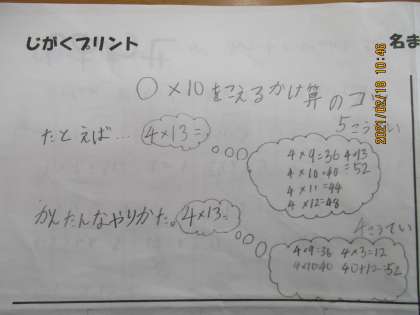 じがくプリント
名ま
○×10をこえるかけ算のコ
5こうてい
たとえば… 4×13=
4×9=36 4×13
4×10=40 =52
4×11=44
4×12=48
かんたんなやりかた。4×13=
4こうてい
4×9=36 4×3=12
4×10=40 40+12=52
2021/02/18 10:46